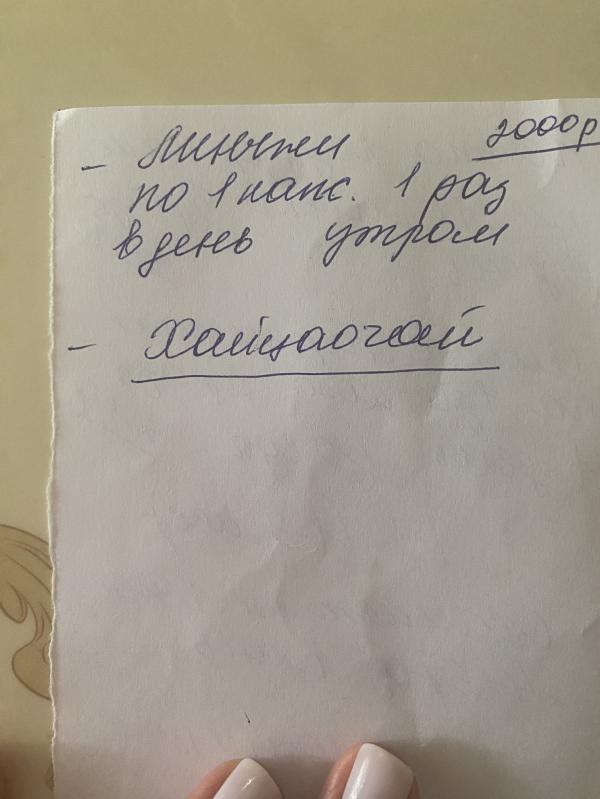 - Линчжи 2000р
по 1 капс. 1 раз
в день утром
- Хайцаочай